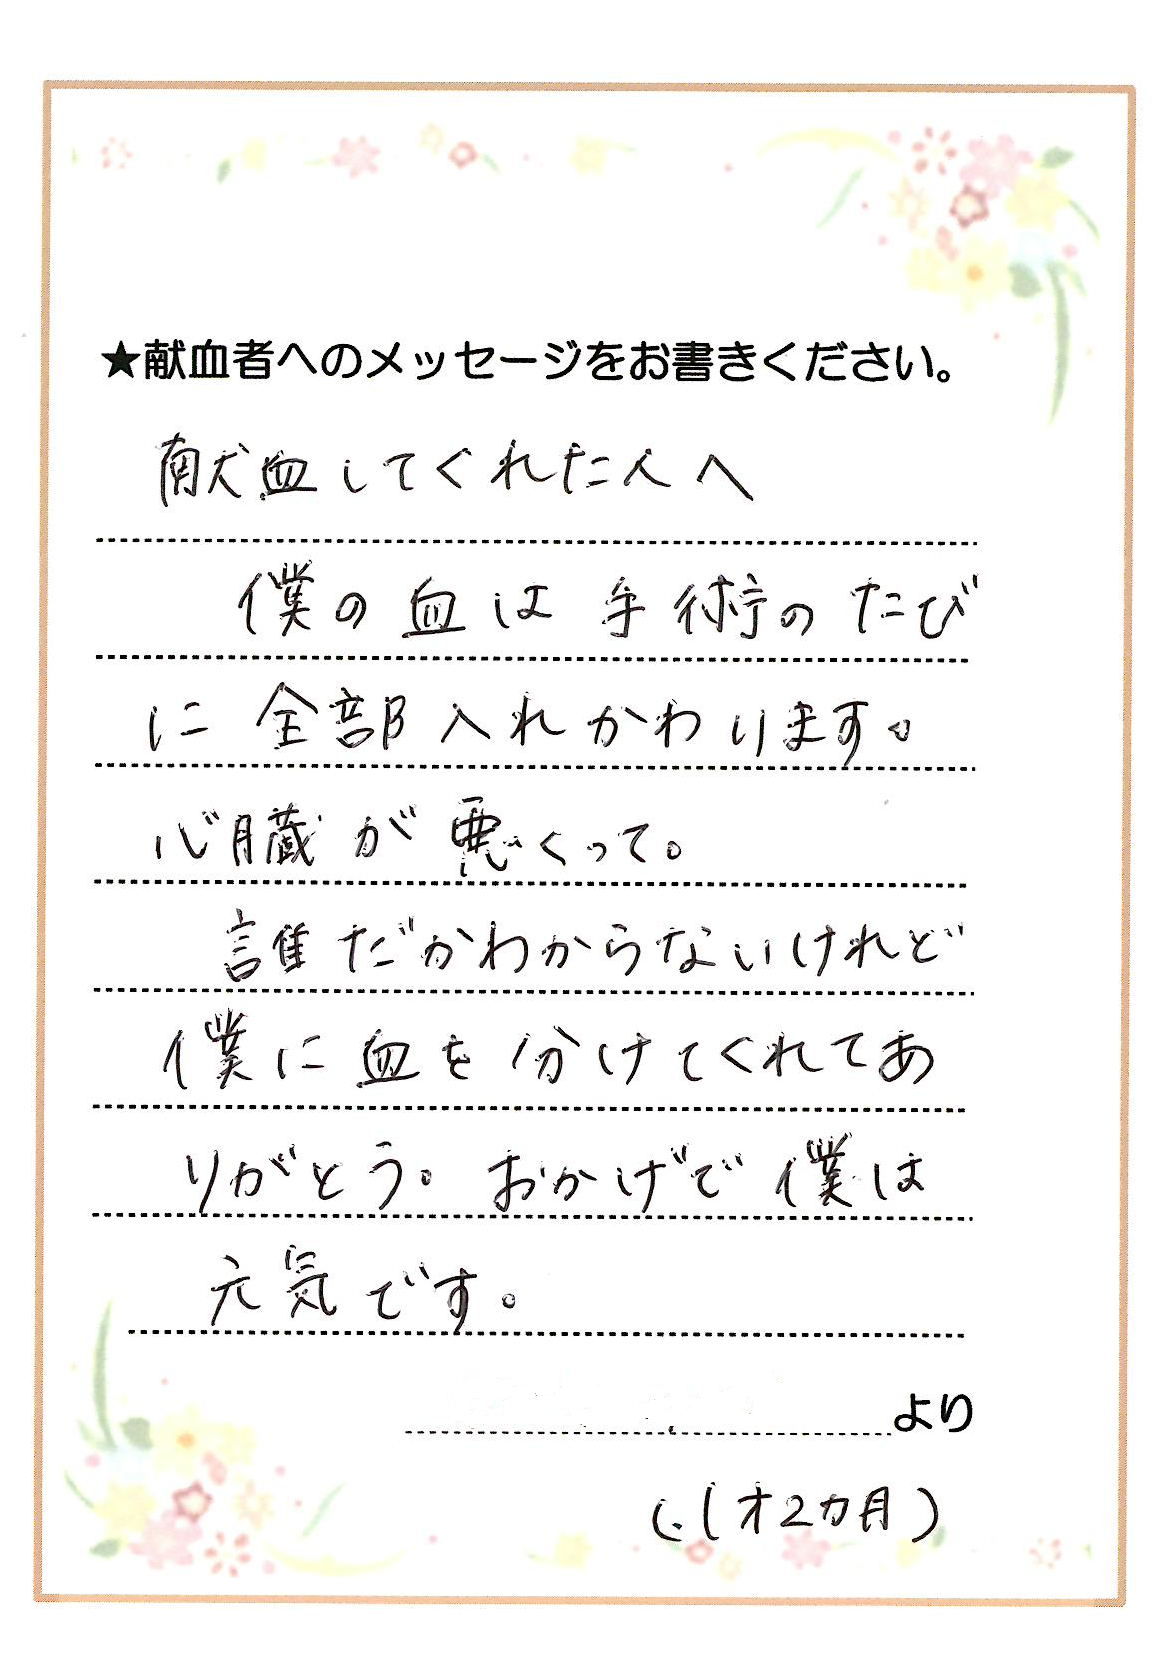 ★献血者へのメッセージをお書きください。
献血してくれた人へ
僕の血は手術のたび
に全部入れかわります。
心臓が悪くって。
誰だかわからないけれど
僕に血を分けてくれてあ
りがとう。おかげで僕は
元気です。
より
(1才2カ月)